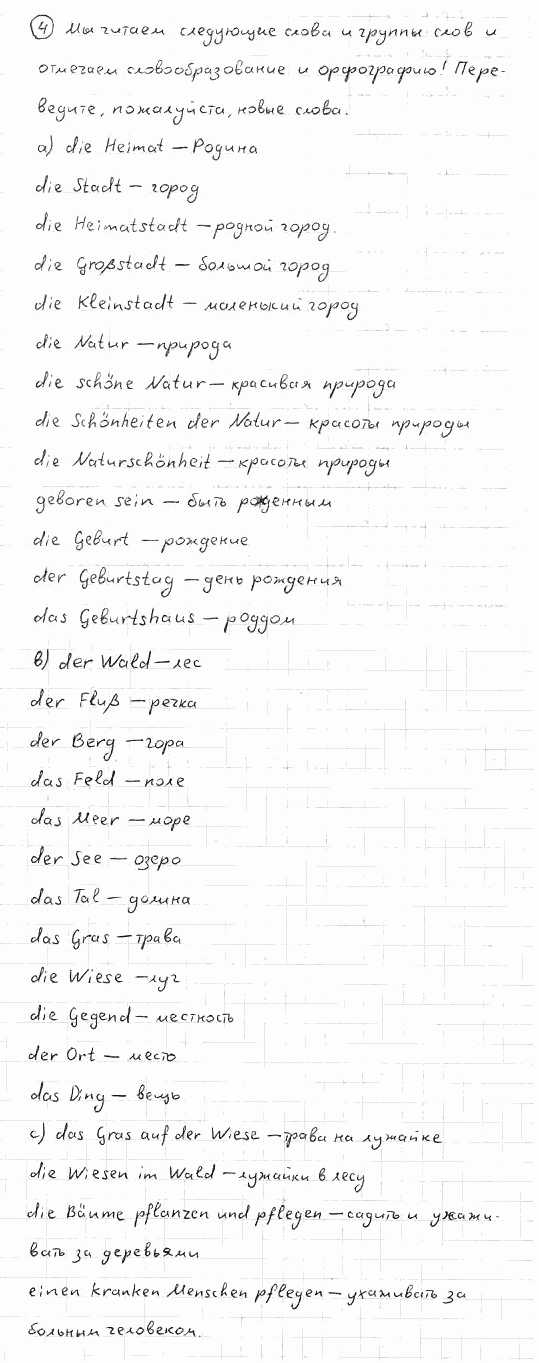 ④ Мы читаем следующие слова и группы слов и
отмечаем словообразование и орфографию! Пере-
ведите, пожалуйста, новые слова.
a) die Heimat — Родина
die Stadt — город
die Heimatstadt — родной город.
die Großstadt — большой город
die Kleinstadt — маленький город
die Natur — природа
die schöne Natur — красивая природа
die Schönheiten der Natur — красоты природы
die Naturschönheit — красоты природы
geboren sein — быть рожденным
die Geburt — рождение
der Geburtstag — день рождения
das Geburtshaus — роддом
b) der Wald — лес
der Fluß — речка
der Berg — гора
das Feld — поле
das Meer — море
der See — озеро
das Tal — долина
das Gras — трава
die Wiese — луг
die Gegend — местность
der Ort — место
das Ding — вещь
c) das Gras auf der Wiese — трава на лужайке
die Wiesen im Wald — лужайки в лесу
die Bäume pflanzen und pflegen — садить и ухажи-
вать за деревьями
einen kranken Menschen pflegen — ухаживать за
больным человеком.